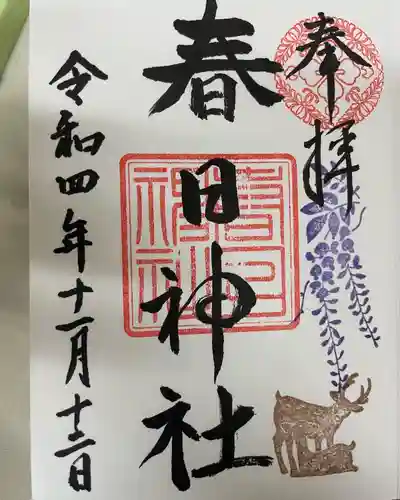 奉拝
春日神社
春日神社
令和四年十一月十二日